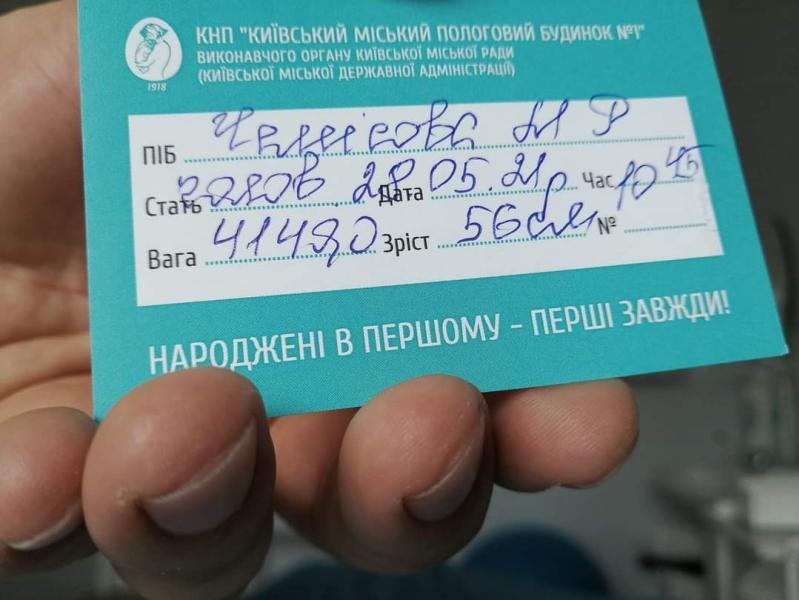 КНП "КИЇВСЬКИЙ МІСЬКИЙ ПОЛОГОВИЙ БУДИНОК №1"
ВИКОНАВЧОГО ОРГАНУ КИЇВСЬКОЇ МІСЬКОЇ РАДИ
(КИЇВСЬКОЇ МІСЬКОЇ ДЕРЖАВНОЇ АДМІНІСТРАЦІЇ)
1918
ПІБ М Р
Стать чолов 28 Дата 05.21р Час 10 45
Вага Зріст 56см №
НАРОДЖЕНІ В ПЕРШОМУ - ПЕРШІ ЗАВЖДИ!